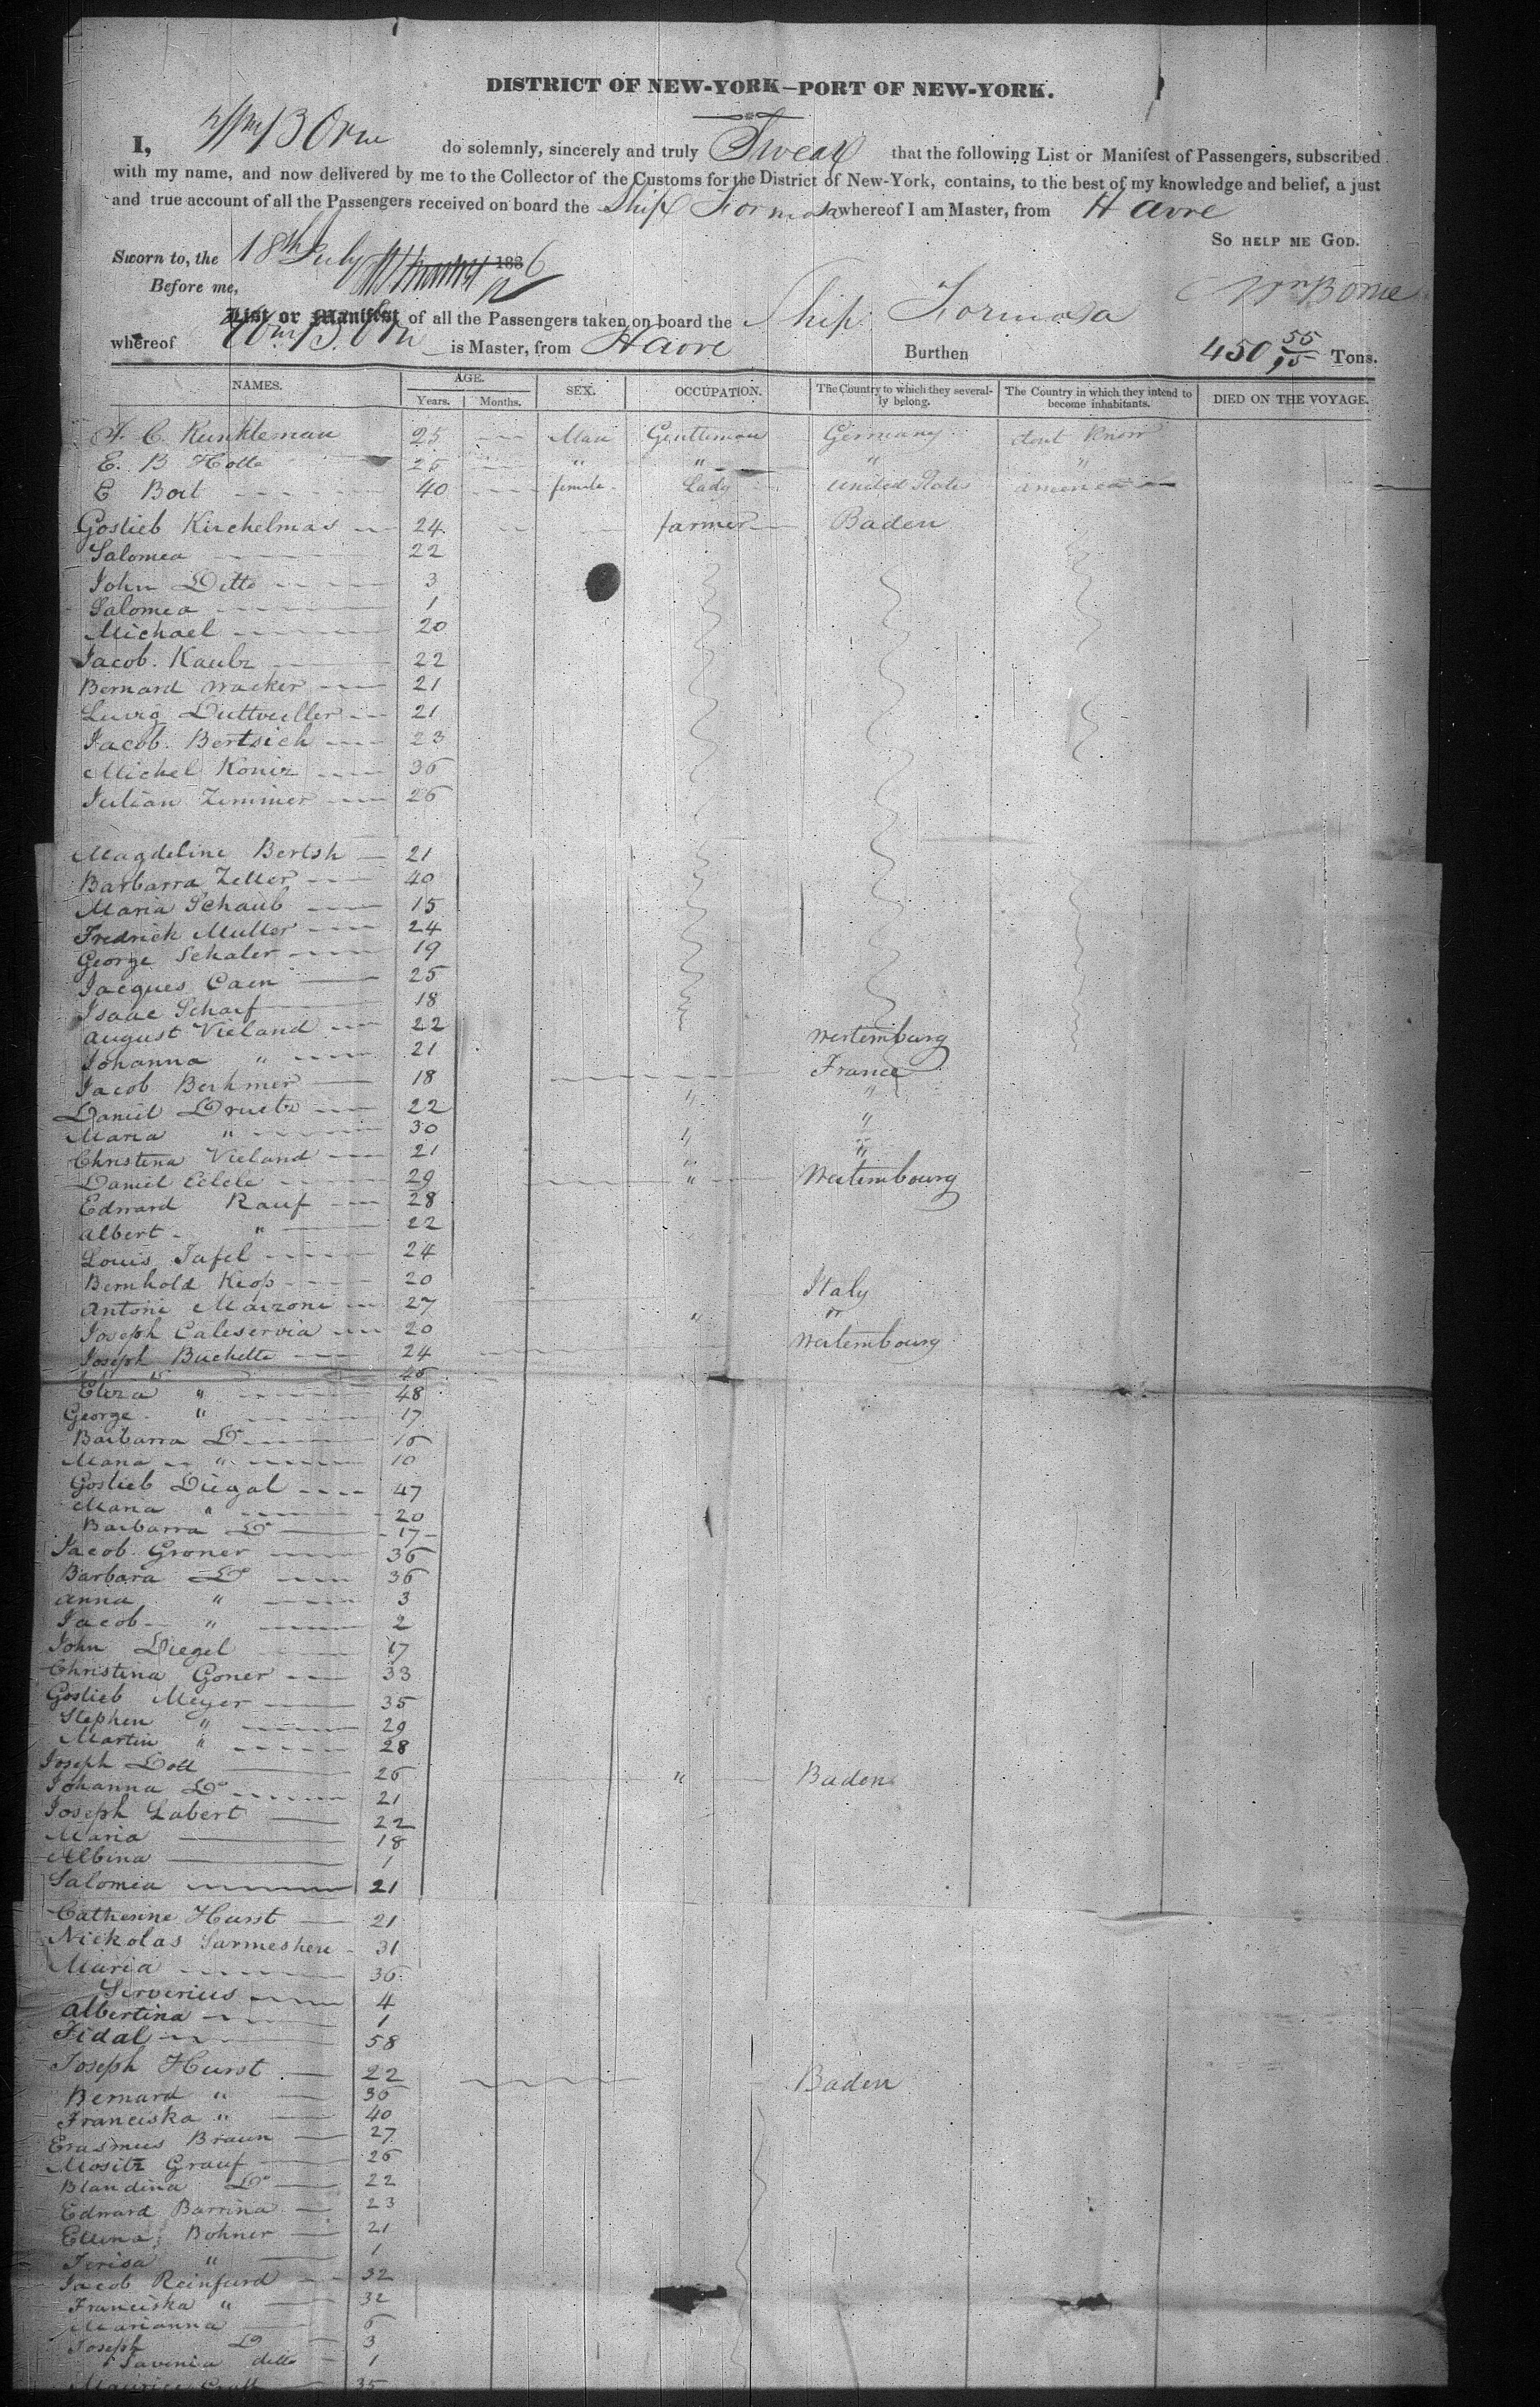 DISTRICT OF NEW-YORK—PORT OF NEW-YORK.
I, Wm B Orne do solemnly, sincerely and truly Swear that the following List or Manifest of Passengers, subscribed
with my name, and now delivered by me to the Collector of the Customs for the District of New-York, contains, to the best of my knowledge and belief, a just
and true account of all the Passengers received on board the Ship Formosa whereof I am Master, from Havre
SO HELP ME GOD.
Sworn to, the 18th July 1836
Before me, Wm B Orne
List or Manifest of all the Passengers taken on board the Ship Formosa
whereof Wm B. Orne is Master, from Havre Burthen 450 55/95 Tons.
NAMES. AGE. Years. Months. SEX. OCCUPATION. The Country to which they severally belong. The Country in which they intend to become inhabitants. DIED ON THE VOYAGE.
A. C. Kunkleman 25 Man Gentleman Germany dont know
E. B Hotto 26 " " " "
E Bort 40 female Lady United States america
Goslieb Kirchelmas 24 farmer Baden
Salomea 22
John Ditto 3
Salomea 1
Michael 20
Jacob. Kaubz 22
Bernard Wacker 21
Luvig Duttweiller 21
Jacob. Bertsich 23
Michel Koniz 36
Julian Zimmer 26
Magdeline Bertsh 21
Barbarra Zeller 40
Maria Schaub 15
Fredrick Muller 24
George Schaler 19
Jacques Caen 25
Isaac Scharf 18
August Vieland 22 Wertemburg
Johanna " 21 France
Jacob Berhmer 18 " "
Daniel Druetz 22 "
Maria " 30 " "
Christina Vieland 21 "
Daniel Eilele 29 " Wertembourg
Edward Rauf 28
Albert " 22
Louis Tafel 24
Bernhold Keop 20 Italy
Antoni Maizone 27 "
Joseph Caleservia 20 Wertembourg
Joseph Buchette 24
45
Eliza " 48
George " 17
Barbarra Do 16
Maria " 10
Goslieb Diegal 47
Maria " 20
Barbarra Do 17
Jacob Groner 36
Barbara Do 36
Anna " 3
Jacob " 2
John Diegel 17
Christina Goner 33
Goslieb Meyer 35
Stephen " 29
Martin " 28
Joseph Doll 26 " Baden
Johanna Do 21
Joseph Labert 22
Maria 18
Albina 1
Salomea 21
Catherine Hurst 21
Nickolas Sarmeshere 31
Maria 36
Serverius 4
Albertina 1
Fidal 58
Joseph Hurst 22 Baden
Bernard " 36
Franciska " 40
Erasmus Braun 27
Mositz Grauf 26
Blandina Do 22
Edward Barrina 23
Ellena Bohner 21
Terisa " 1
Jacob Reinfurd 32
Franciska " 32
Marianna 6
Joseph Do 3
Savenia ditto 1
Maurice Croll 35